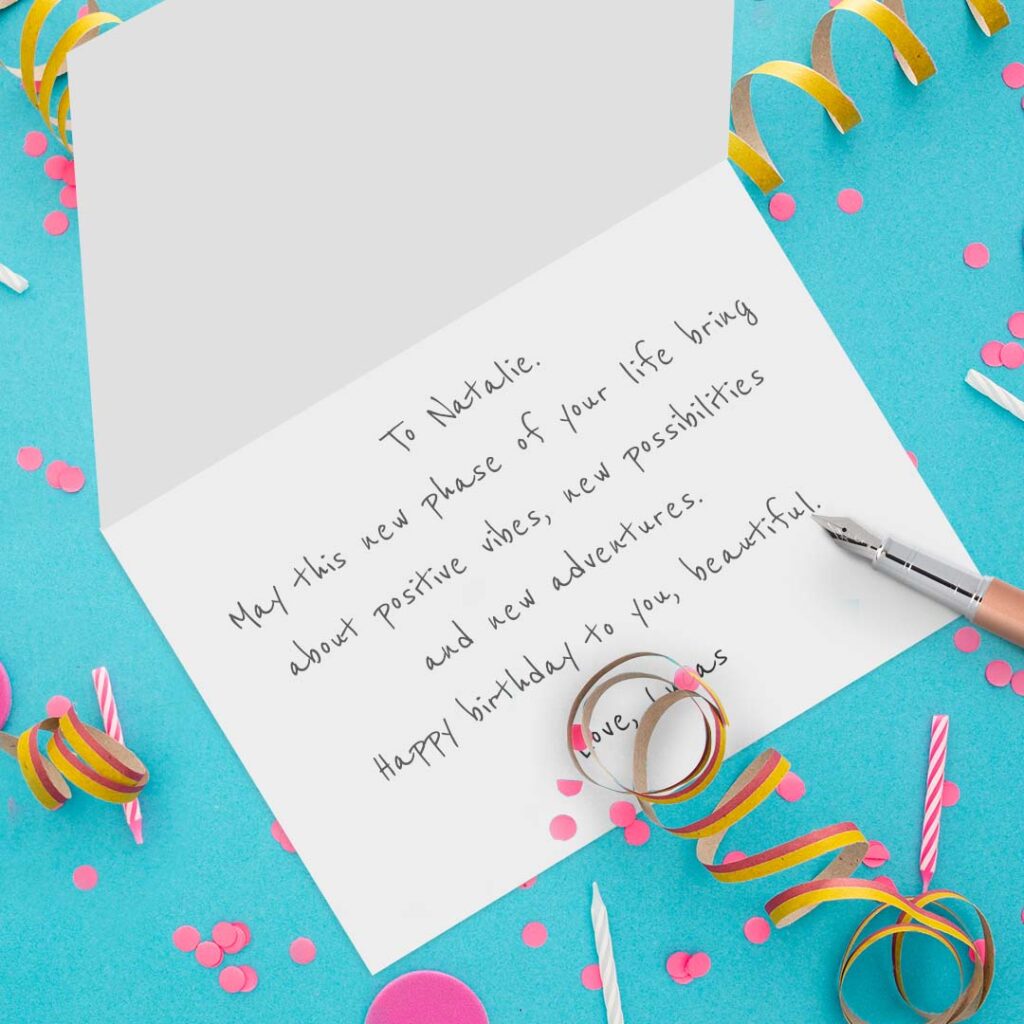 To Natalie.
May this new phase of your life bring
about positive vibes, new possibilities
and new adventures.
Happy birthday to you, beautiful.
Love,